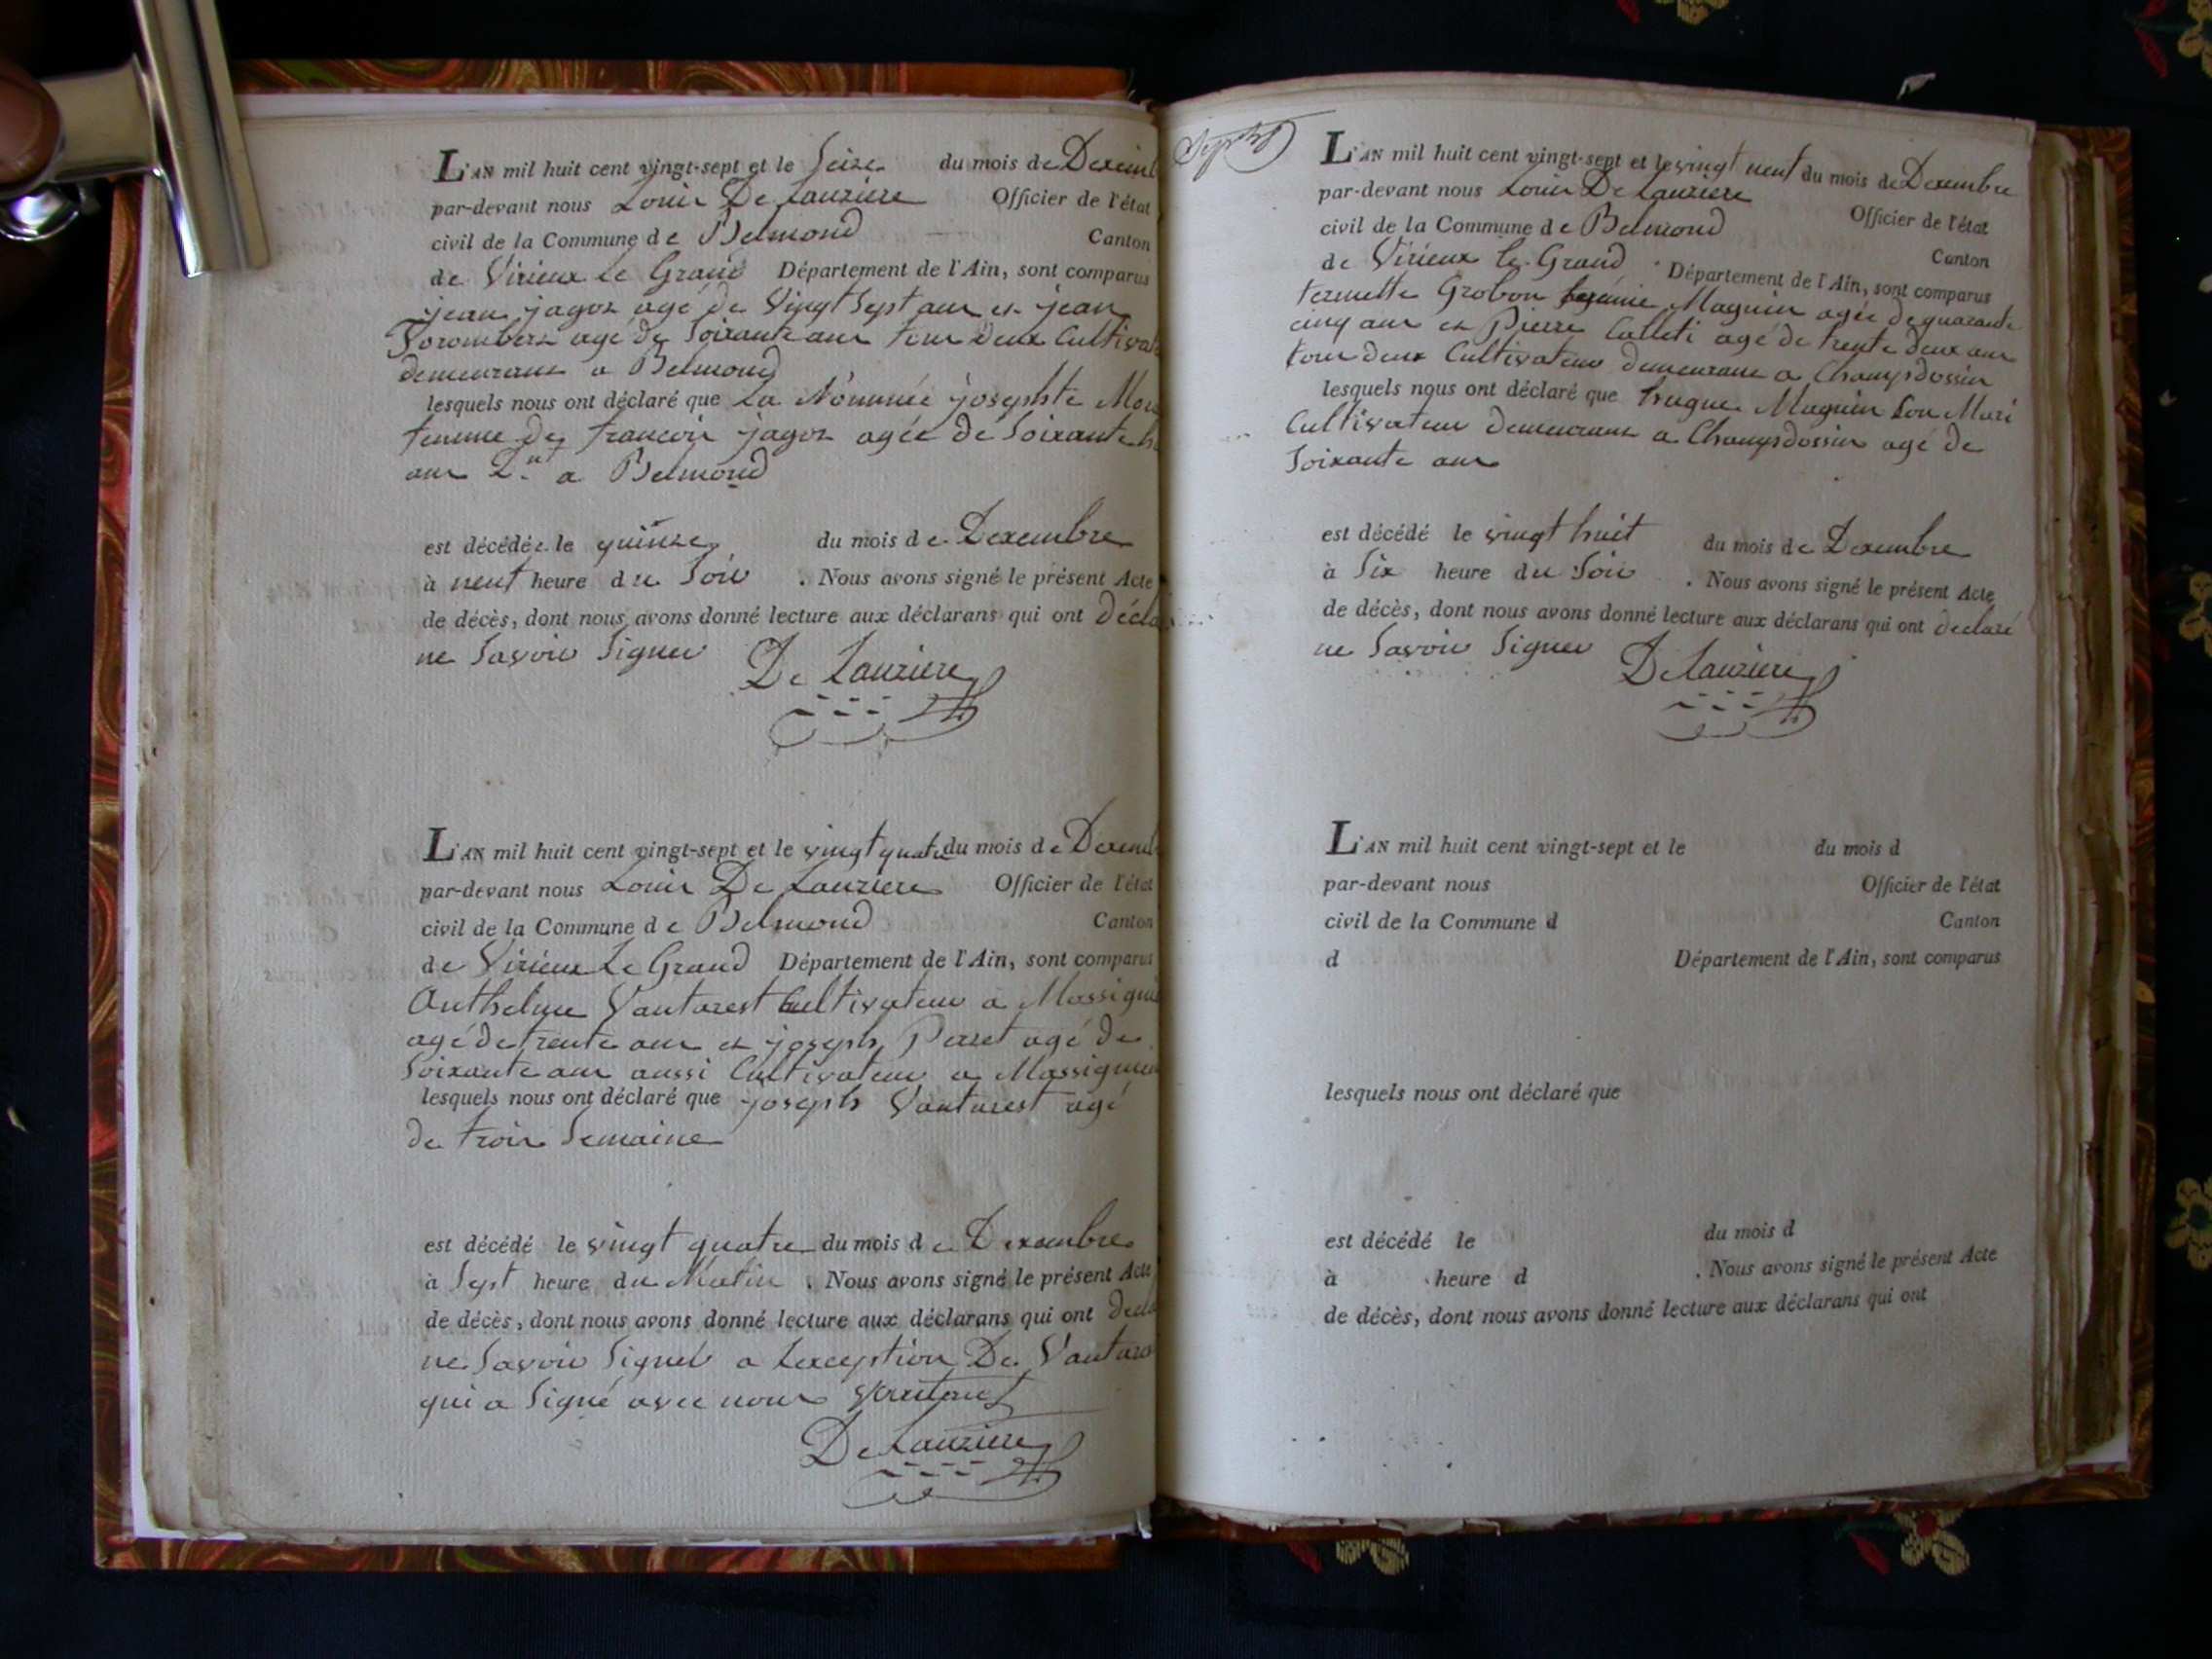 L'AN mil huit cent vingt-sept et le Seize du mois de Decemb
par-devant nous Louis De Lauziere Officier de l'état
civil de la Commune de Belmond Canton
de Virieux Le Grand Département de l'Ain, sont comparus
jean jagot agé de Vingt Sept ans et jean
agé de Soixante ans tous deux Cultivat
demeurans a Belmond
lesquels nous ont déclaré que La Nommée josephte
femme de francois jagot agée de Soixante
ans a Belmond
est décédée le quinze du mois de Decembre
à neuf heure du Soir . Nous avons signé le présent Acte
de décès, dont nous avons donné lecture aux déclarans qui ont décla
ne Savoir Signer De Lauziere
L'AN mil huit cent vingt-sept et le vingt quatre du mois de Decemb
par-devant nous Louis De Lauziere Officier de l'état
civil de la Commune de Belmond Canton
de Virieux Le Grand Département de l'Ain, sont comparus
Anthelme Vantarest Cultivateur a Massigni
agé de trente ans et joseph Perret agé de
Soixante ans aussi Cultivateur a Massigni
lesquels nous ont déclaré que joseph Vantarest agé
de trois Semaine
est décédé le vingt quatre du mois de Decembre
à Sept heure du Matin . Nous avons signé le présent Acte
de décès, dont nous avons donné lecture aux déclarans qui ont décla
ne Savoir Signer a Lexception De Vantare
qui a Signé avec nous Vantarest
De Lauziere
L'AN mil huit cent vingt-sept et le vingt neuf du mois de Decembre
par-devant nous Louis De Lauziere Officier de l'état
civil de la Commune de Belmond Canton
de Virieux le Grand Département de l'Ain, sont comparus
Grobon Maguin agée de quarante
cinq ans et Pierre Calleti agé de trente deux ans
tous deux Cultivateur demeurans a Champdossin
lesquels nous ont déclaré que hugue Maguin Son Mari
Cultivateur demeurant a Champdossin agé de
Soixante ans
est décédé le vingt huit du mois de Decembre
à Six heure du Soir . Nous avons signé le présent Acte
de décès, dont nous avons donné lecture aux déclarans qui ont declaré
ne Savoir Signer De Lauziere
L'AN mil huit cent vingt-sept et le du mois d
par-devant nous Officier de l'état
civil de la Commune d Canton
d Département de l'Ain, sont comparus
lesquels nous ont déclaré que
est décédé le du mois d
à heure d . Nous avons signé le présent Acte
de décès, dont nous avons donné lecture aux déclarans qui ont